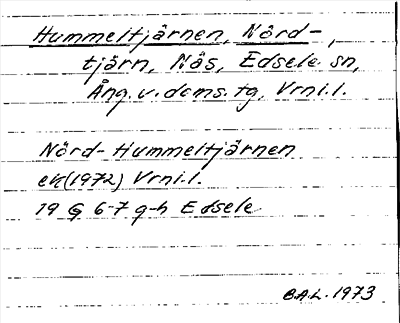 Hummeltjärnen, Nörd-,
tjärn, Näs, Edsele sn,
Ång. v. doms. tg, Vrnl.l.
Nörd-Hummeltjärnen
ek(1972) Vrnl.l.
19 G 6-7 g-h Edsele
BAL. 1973